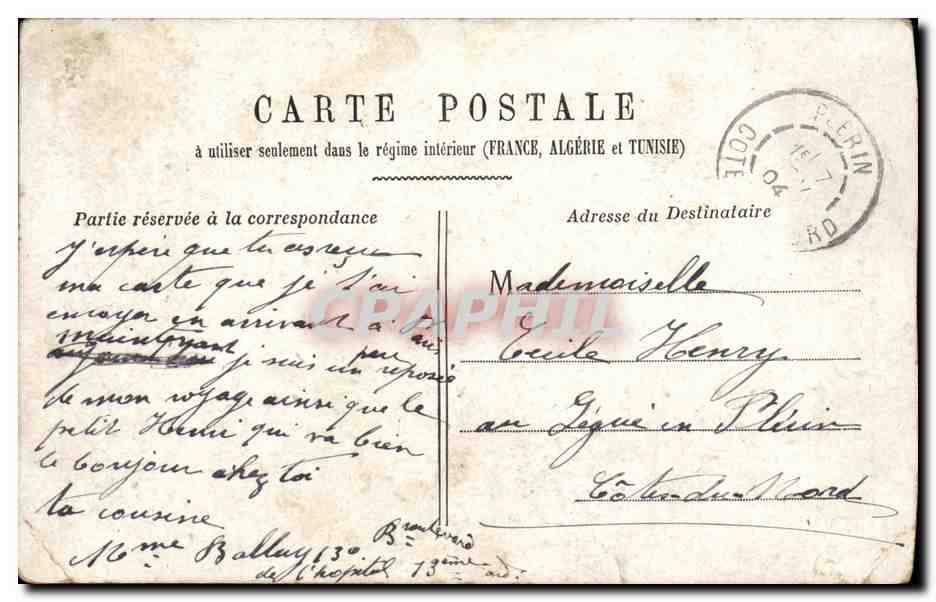 CARTE POSTALE
à utiliser seulement dans le régime intérieur (FRANCE, ALGÉRIE et TUNISIE)
PLERIN
COTE
1E
7
04
RD
Partie réservée à la correspondance
J'espère que tu as reçue
ma carte que je t'ai
envoyer en arrivant à Paris
maintenant je suis un peu reposée
de mon voyage ainsi que le
petit Henri qui va bien
le bonjour chez toi
ta cousine
Mme 130 Boulevard
de l'hopital 13ème
Adresse du Destinataire
Mademoiselle
Cécile Henry
au Légué en Plérin
Côtes-du-Nord
CPAPHIL